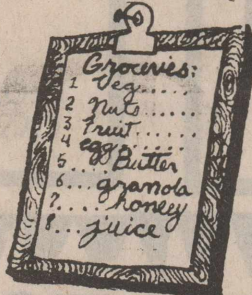 Groceries:
1 Veg.....
2 Nuts.....
3 Fruit......
4 eggs.....
5.....Butter
6...granola
7.....honey
8...juice